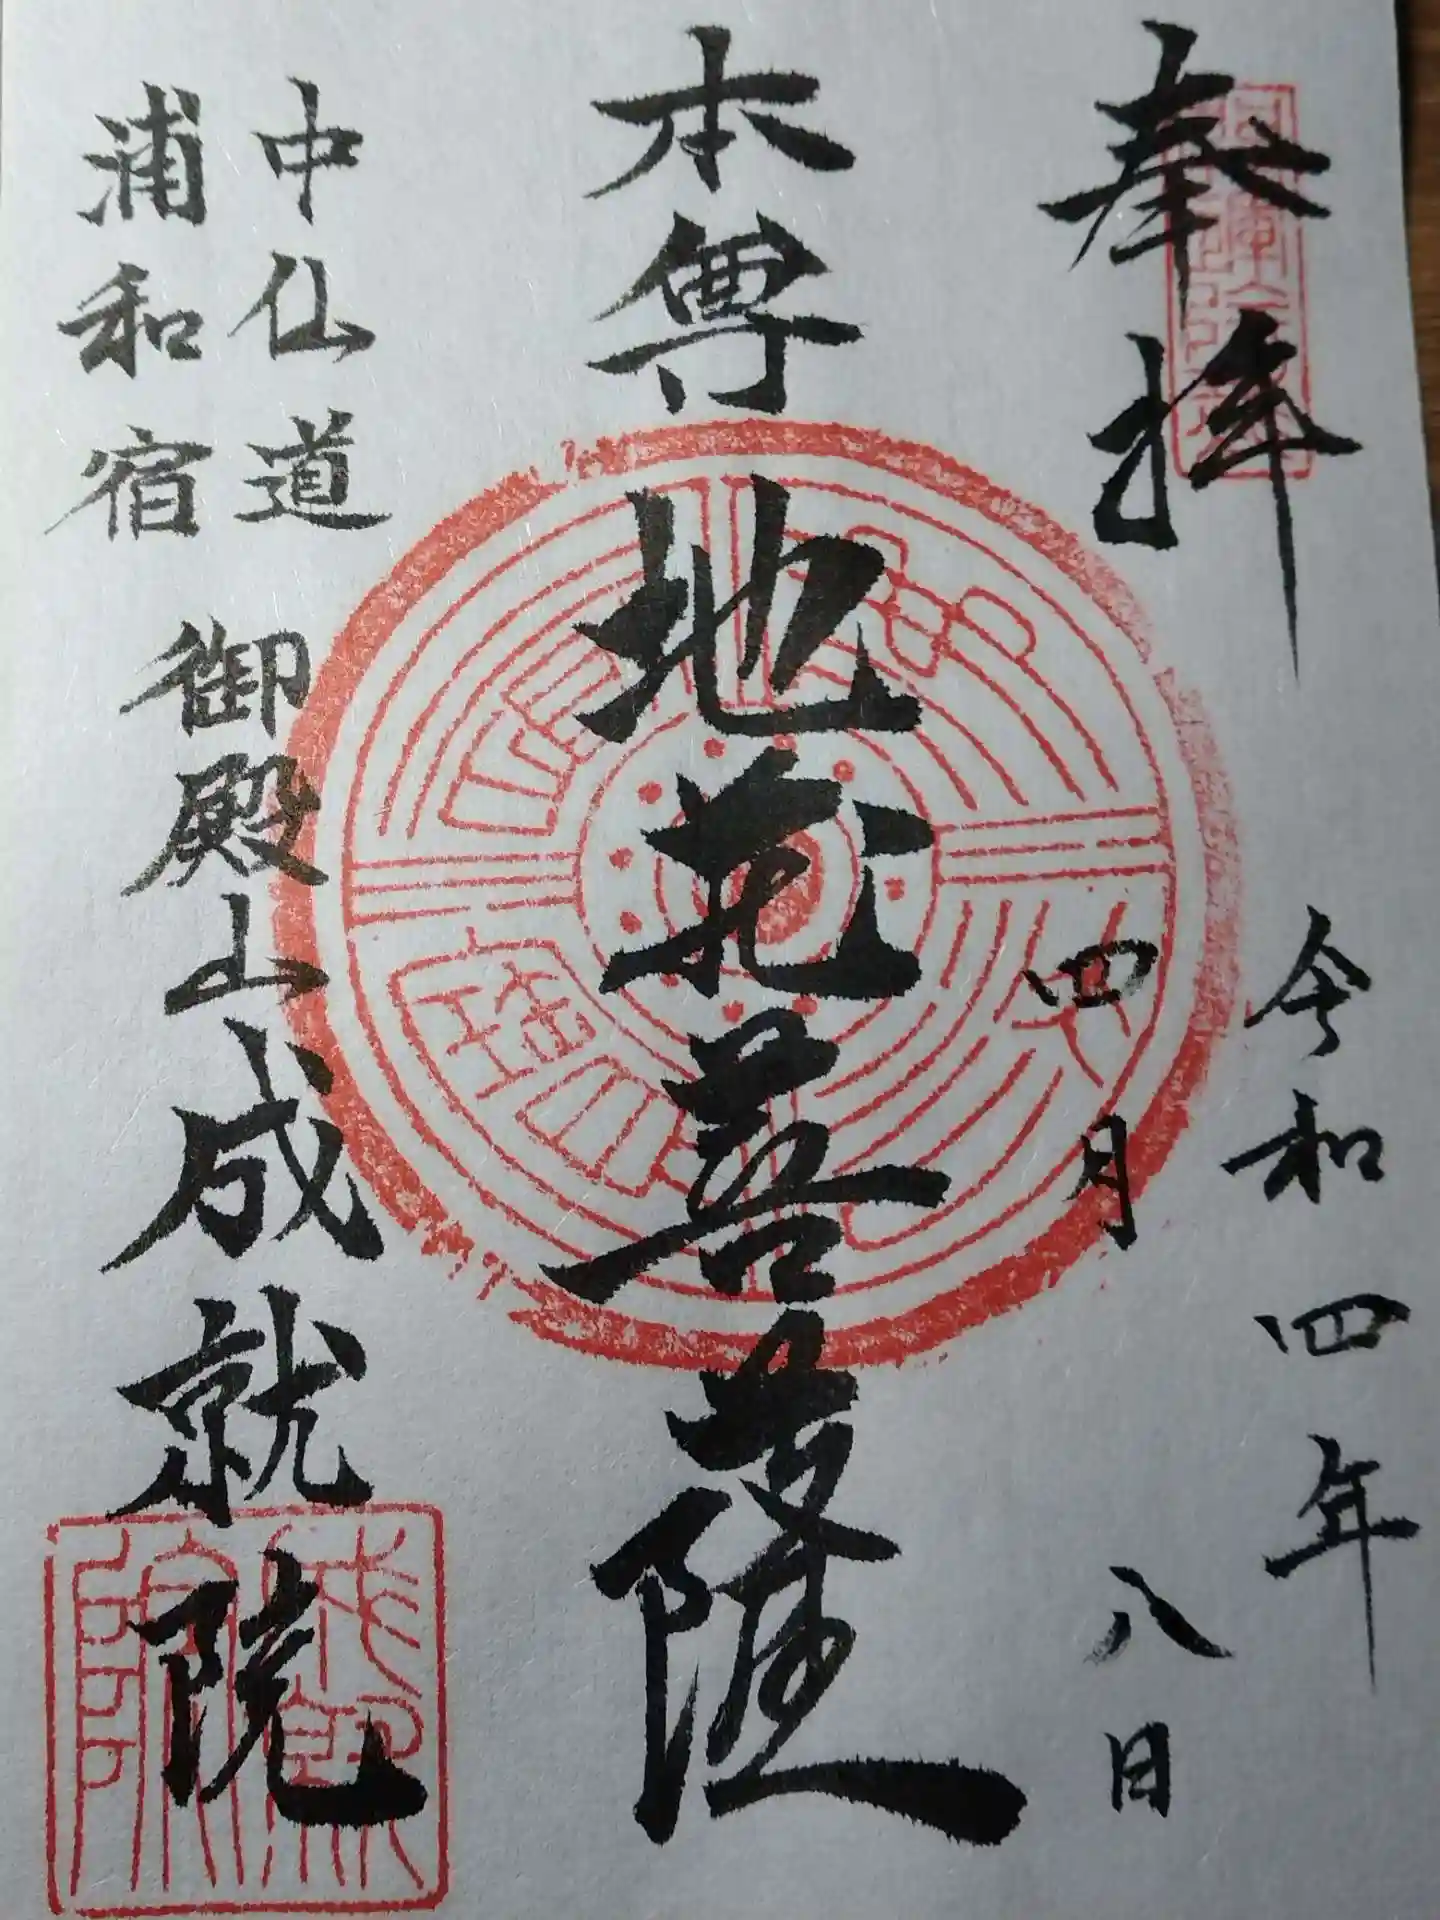 奉拝
令和四年
四月八日
本尊 地蔵菩薩
中仙道
浦和宿
御殿山成就院